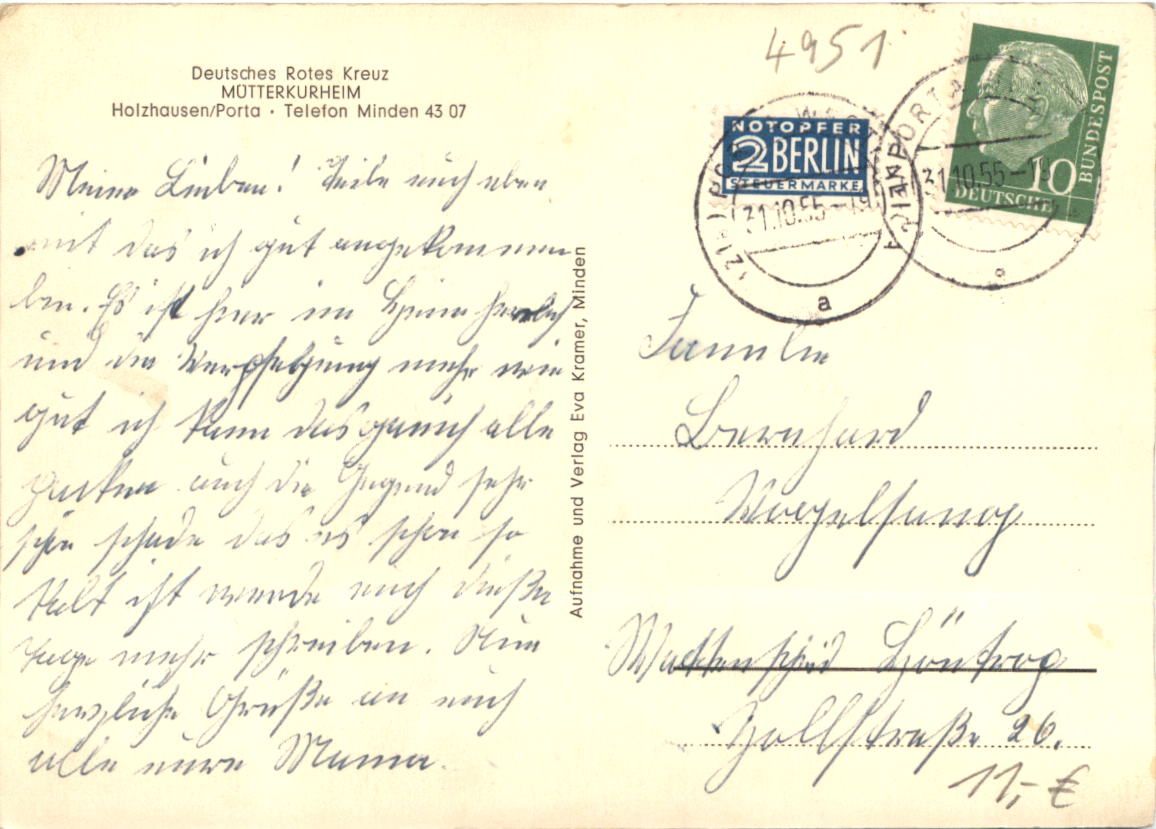 Deutsches Rotes Kreuz
MÜTTERKURHEIM
Holzhausen/Porta · Telefon Minden 43 07
Meine Lieben! Teile euch eben
mit das ich gut angekommen
bin. Es ist hier im Heim herrlich
und die Verpflegung mehr wie
gut ich kann das garnich alle
packen auch die Gegend sehr
schön schade das es schon so
kalt ist werde euch dieße
Tage mehr schreiben. Nun
herzliche Grüße an euch
alle eure Mama.
Aufnahme und Verlag Eva Kramer, Minden
4951
NOTOPFER
2 BERLIN
STEUERMARKE
31.10.55
a
10
DEUTSCHE
BUNDESPOST
PORTA
31.10.55
Familie
Bernhard
Vogelsang
Wattenscheid Höntrop
Hollstraße 26.
11,- €